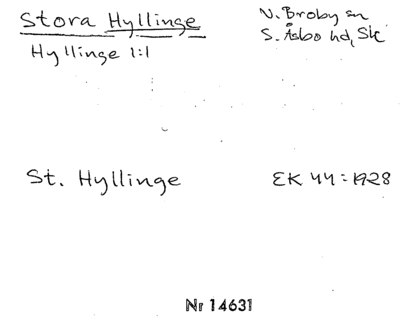 Stora Hyllinge
N. Broby sn
Hyllinge 1:1
S. Åsbo hd, Sk
St. Hyllinge
EK 44 = 1928
Nr 14631